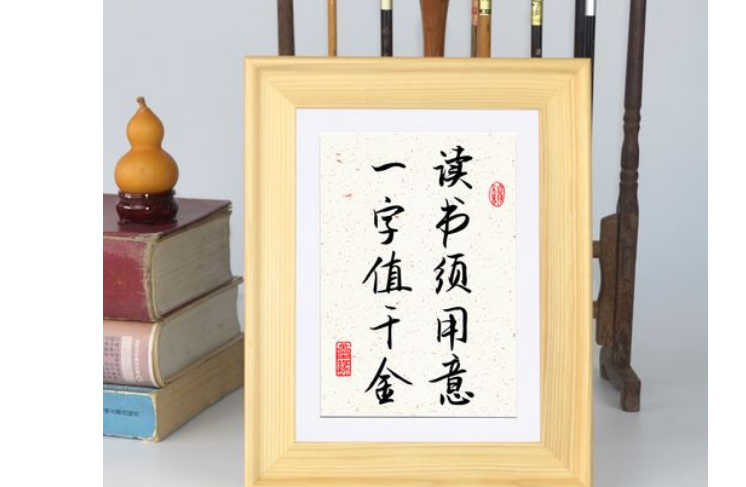 读书须用意
一字值千金